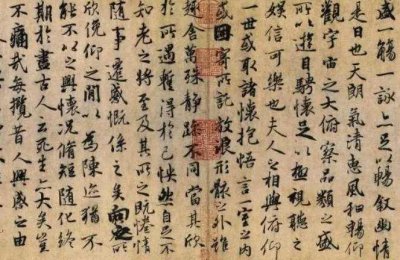 盛一觴一詠亦足以暢敘幽情
是日也天朗氣清惠風和暢仰
觀宇宙之大俯察品類之盛
所以遊目騁懷足以極視聽之
娛信可樂也夫人之相與俯仰
一世或取諸懷抱悟言一室之內
或因寄所託放浪形骸之外雖
趣舍萬殊靜躁不同當其欣
於所遇暫得於己怏然自足不
知老之將至及其所之既惓情
隨事遷感慨係之矣向之所
欣俛仰之間以為陳迹猶不
能不以之興懷況脩短隨化終
期於盡古人云死生亦大矣豈
不痛哉每攬昔人興感之由